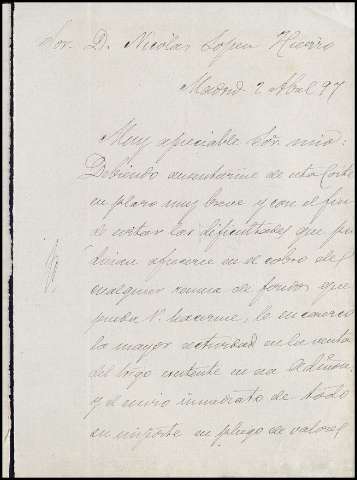 Sor. D. Nicolás Lopez Hierro
Madrid 2 Abril 97
Muy apreciable Sor. mio:
Debiendo ausentarme de esta Corte
en plazo muy breve y con el fin
de evitar las dificultades que pu
dieran ofrecerse en el cobro de
cualquier remesa de fondos que
pueda V. hacerme, le encarezco
la mayor actividad en la venta
del trigo existente en esa Admon.
y el envio inmediato de todo
su importe en pliego de valores